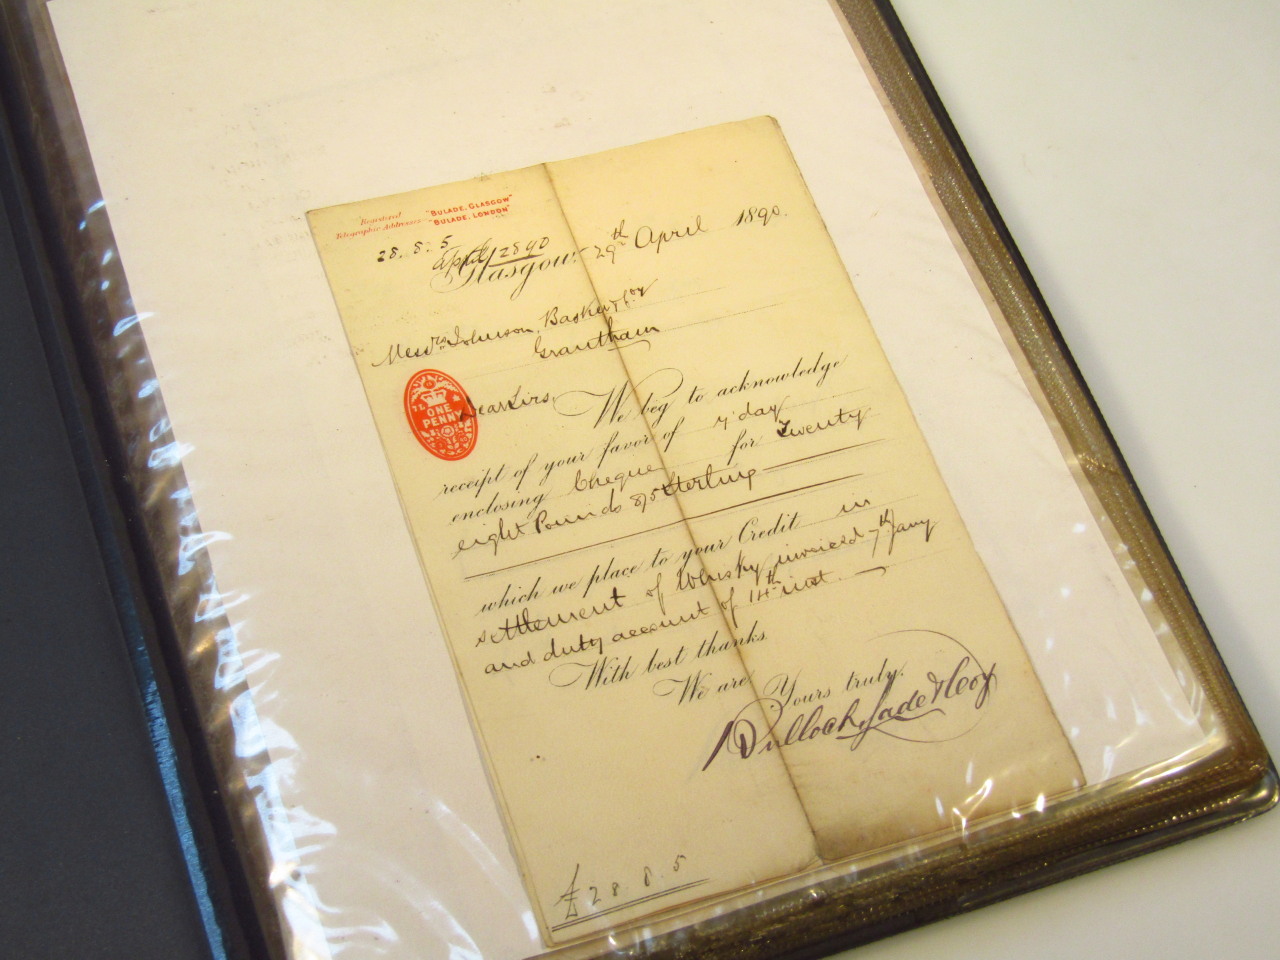 Registered Telegraphic Addresses "BULADE, GLASGOW"
"BULADE, LONDON"
28. 8. 5
April 2890
Glasgow, 29th April 1890.
Messrs Johnson, Basker & Coy
Grantham
ONE
PENNY
Dear Sirs, We beg to acknowledge
receipt of your favor of 7 day
enclosing Cheque for Twenty
eight Pounds 8/5 Sterling
which we place to your Credit in
settlement of Whisky invoiced 7th Jany
and duty account of 14th inst.
With best thanks.
We are Yours truly.
Bulloch, Lade & Coy
£28. 8. 5